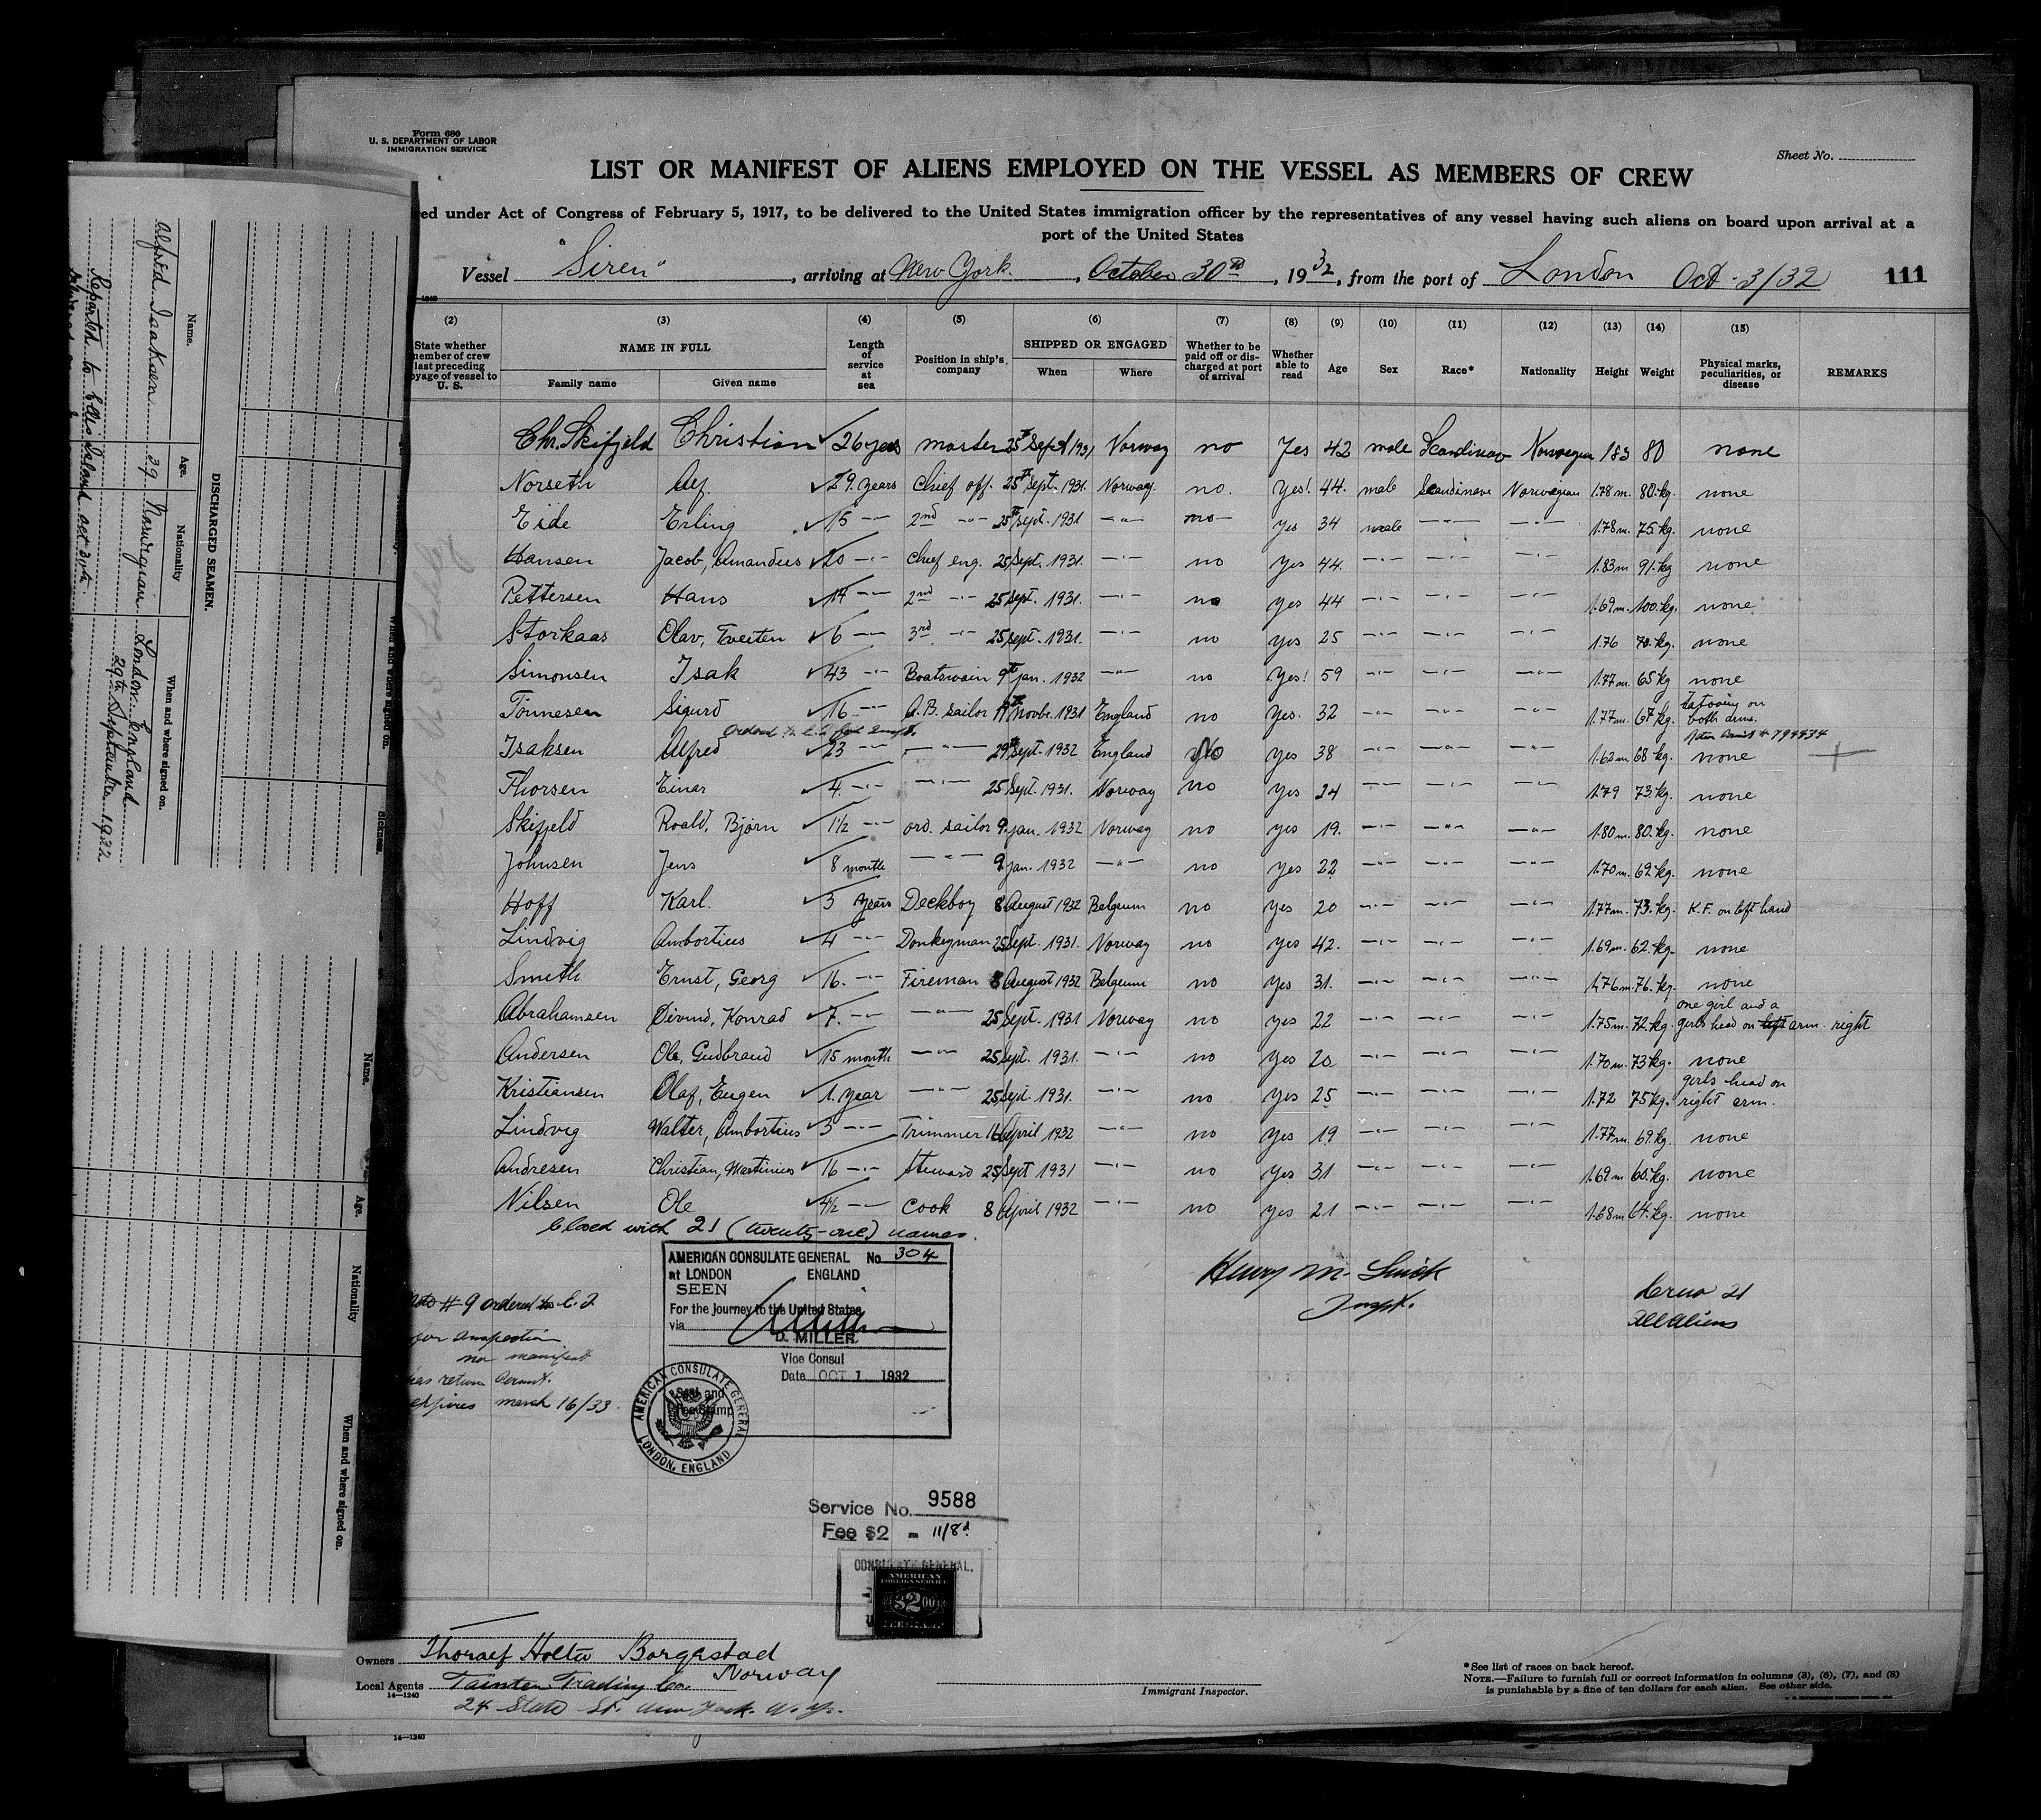 Form 680
U. S. DEPARTMENT OF LABOR
IMMIGRATION SERVICE
Sheet No.
LIST OR MANIFEST OF ALIENS EMPLOYED ON THE VESSEL AS MEMBERS OF CREW
ed under Act of Congress of February 5, 1917, to be delivered to the United States immigration officer by the representatives of any vessel having such aliens on board upon arrival at a
port of the United States
Vessel "Siren", arriving at New York, October 30th, 1932, from the port of London Oct 3/32 111
(2) (3) (4) (5) (6) (7) (8) (9) (10) (11) (12) (13) (14) (15)
State whether member of crew last preceding voyage of vessel to U. S.
NAME IN FULL
Family name
Given name
Length of service at sea
Position in ship's company
SHIPPED OR ENGAGED
When
Where
Whether to be paid off or discharged at port of arrival
Whether able to read
Age
Sex
Race*
Nationality
Height
Weight
Physical marks, peculiarities, or disease
REMARKS
Chr. Skifjeld Christian ✓ 26 years master 25th Sept 1931 Norway no Yes 42 male Scandinav Norwegian 183 80 none
Norseth Alf ✓ 29. years Chief off. 25th sept. 1931. Norway. no. Yes! 44. male Scandinave Norwegian 1.78 m. 80.kg. none
Eide Erling ✓ 15 -"- 2nd -"- 25th sept. 1931 -"- no yes 34 male -"- -"- 1.78m. 75.kg. none
Hansen Jacob, Amandus ✓ 20 -"- Chief eng. 25 sept. 1931. -"- no yes 44. -"- -"- -"- 1.83m 91.kg none
Pettersen Hans ✓ 14 -"- 2nd -"- 25 sept. 1931. -"- no yes 44 -"- -"- -"- 1.69m. 100.kg. none
Storkaas Olav, Tveiten ✓ 6 -"- 3rd -"- 25 sept. 1931. -"- no yes 25 -"- -"- -"- 1.76 70.kg. none
Simonsen Isak ✓ 43 -"- Boatswain 9th jan. 1932 -"- no Yes! 59 -"- -"- -"- 1.77m. 65 kg none
Tönnesen Sigurd ✓ 16 -"- A.B. sailor Novbr. 1931 England no Yes. 32 -"- -"- -"- 1.77m. 67 kg. tatooing on both arms.
Isaksen Alfred ✓ 23 -"- -"- 29th sept. 1932 England No yes 38 -"- -"- -"- 1.62m 68 kg. none
Thorsen Einar ✓ 4. -"- -"- 25 sept. 1931. Norway no yes 24 -"- -"- -"- 1.79 73.kg. none
Skifjeld Roald, Bjørn ✓ 1½ -"- ord. sailor 9. jan. 1932 Norway no yes 19. -"- -"- -"- 1.80m. 80.kg. none
Johnsen Jens ✓ 8 month -"- 9. jan. 1932 -"- no yes 22 -"- -"- -"- 1.70m. 62.kg. none
Hoff Karl. ✓ 3 years Deckboy 8 August 1932 Belgeum no yes 20 -"- -"- -"- 1.77m. 73.kg. K.F. on left hand
Lindvig Ambortius ✓ 4 -"- Donkeyman 25 sept. 1931. Norway no yes 42. -"- -"- -"- 1.69m. 62.kg. none
Smeth Ernst, Georg ✓ 16. -"- Fireman 8 August 1932 Belgeum no yes 31. -"- -"- -"- 1.76m. 76.kg. none
Abrahamsen Öivind, Konrad ✓ 7. -"- -"- 25 sept. 1931 Norway no yes 22 -"- -"- -"- 1.75m. 72.kg. one girl and a girls head on left arm. right
Andersen Ole, Gudbrand ✓ 15 month -"- 25 sept. 1931. -"- no yes 20 -"- -"- -"- 1.70m. 73kg. none
Kristiansen Olaf, Eugen ✓ 1. year -"- 25 sept. 1931. -"- no yes 25 -"- -"- -"- 1.72 75kg. girls head on right arm.
Lindvig Walter, Ambortius ✓ 3 -"- Trimmer April 1932 -"- no yes 19 -"- -"- -"- 1.77m. 69.kg. none
Andresen Christian, Martinius ✓ 16 -"- Steward 25 sept 1931 -"- no yes 31 -"- -"- -"- 1.69m none
Nilsen Ole ✓ 4½ -"- Cook 8 April 1932 -"- no yes 21 -"- -"- -"- 1.68m 64.kg. none
Closed with 21 (twenty-one) names.
AMERICAN CONSULATE GENERAL No 304
at LONDON ENGLAND
SEEN
For the Journey to the United States
via
D. MILLER
Vice Consul
Date OCT 1 1932
Seal and
Fee Stamp
AMERICAN CONSULATE GENERAL LONDON, ENGLAND
Henry M.
Inspt.
Crew 21
All aliens
# 9 ordered to E. I.
for inspection
no manifest
has return permit.
expires march 16/33
Service No. 9588
Fee $2 = 11/8d
CONSULATE GENERAL,
AMERICAN
FOREIGN SERVICE
$2.00
FEE STAMP
Owners Thoralf Holta Borgestad
Norway
Local Agents Trading Co.
14—1240
24 State St. New York. N. Y.
Immigrant Inspector.
*See list of races on back hereof.
NOTE.—Failure to furnish full or correct information in columns (3), (6), (7), and (8)
is punishable by a fine of ten dollars for each alien. See other side.
14—1240
DISCHARGED SEAMEN.
Name.
Age.
Nationality
When and where signed on.
Alfred Isaksen
39
Norwegian
London England
29th September 1932
Reported to Ellis Island Oct 30th
Name.
Age.
Nationality
When and where signed on.